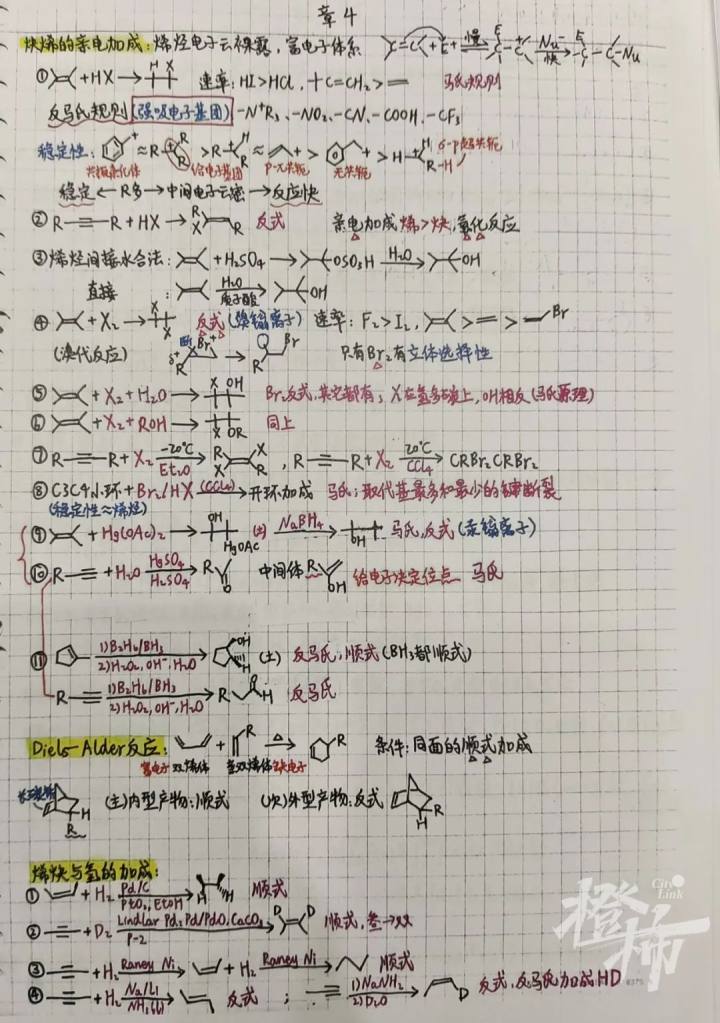 章4
炔烯的亲电加成：烯烃电子云裸露，富电子体系 C=C + E+ 慢 E C-C+ Nu- 快 E C-C Nu
① + HX → H X 速率：HI>HCl， C=CH2 > = 马氏规则
反马氏规则(强吸电子基团) -N+R3、-NO2、-CN、-COOH、-CF3
稳定性： + ≈ R + R R > R + H R ≈ + > + > H + H R-H σ-p超共轭
共振杂化体 给电子基团 p-π共轭 无共轭
稳定 ← R多 → 中间电子云密 → 反应快
② R-≡-R + HX → R X R 反式 亲电加成 烯>炔，氢化反应
③ 烯烃间接水合法： + H2SO4 → OSO3H H2O → OH
直接 ： H2O 质子酸 → OH
④ + X2 → X X 反式 (溴鎓离子) 速率：F2>I2， > = > Br
(溴代反应) δ+ Br+ R → R Br 只有Br2有立体选择性
⑤ + X2 + H2O → X OH Br2反式，其它都有；X在氢多碳上，OH相反(马氏原理)
⑥ + X2 + ROH → X OR 同上
⑦ R-≡-R + X2 -20℃ Et2O → R X X R ， R-≡-R + X2 20℃ CCl4 → CRBr2CRBr2
⑧ C3C4小环 + Br2/HX (CCl4) → 开环加成 马氏；取代基最多和最少的键断裂
(稳定性≈烯烃)
⑨ + Hg(OAc)2 → OH HgOAc (±) NaBH4 → OH 马氏，反式 (汞鎓离子)
⑩ R-≡ + H2O HgSO4 H2SO4 → R O 中间体 R OH 给电子决定位点 马氏
⑪ 1)B2H6/BH3 2)H2O2,OH-,H2O → OH H (±) 反马氏，顺式(BH3都顺式)
R-≡ 1)B2H6/BH3 2)H2O2,OH-,H2O → R O H 反马氏
Diels-Alder反应： + R △ → R 条件：同面的顺式加成
富电子 双烯体 亲双烯体 缺电子
H R (主)内型产物：顺式 (次)外型产物：反式 H R
烯炔与氢的加成：
① + H2 Pd/C PtO2,EtOH → H H 顺式
② -≡- + D2 Lindlar Pd、Pd/PdO,CaCO3 P-2 → D D 顺式，叁→双
③ -≡- + H2 Raney Ni → + H2 Raney Ni → 顺式
④ -≡- + H2 Na/Li NH3(l) → 反式 ； -≡ 1)NaNH2 2)D2O → D 反式，反马氏加成HD
City Link
橙柿